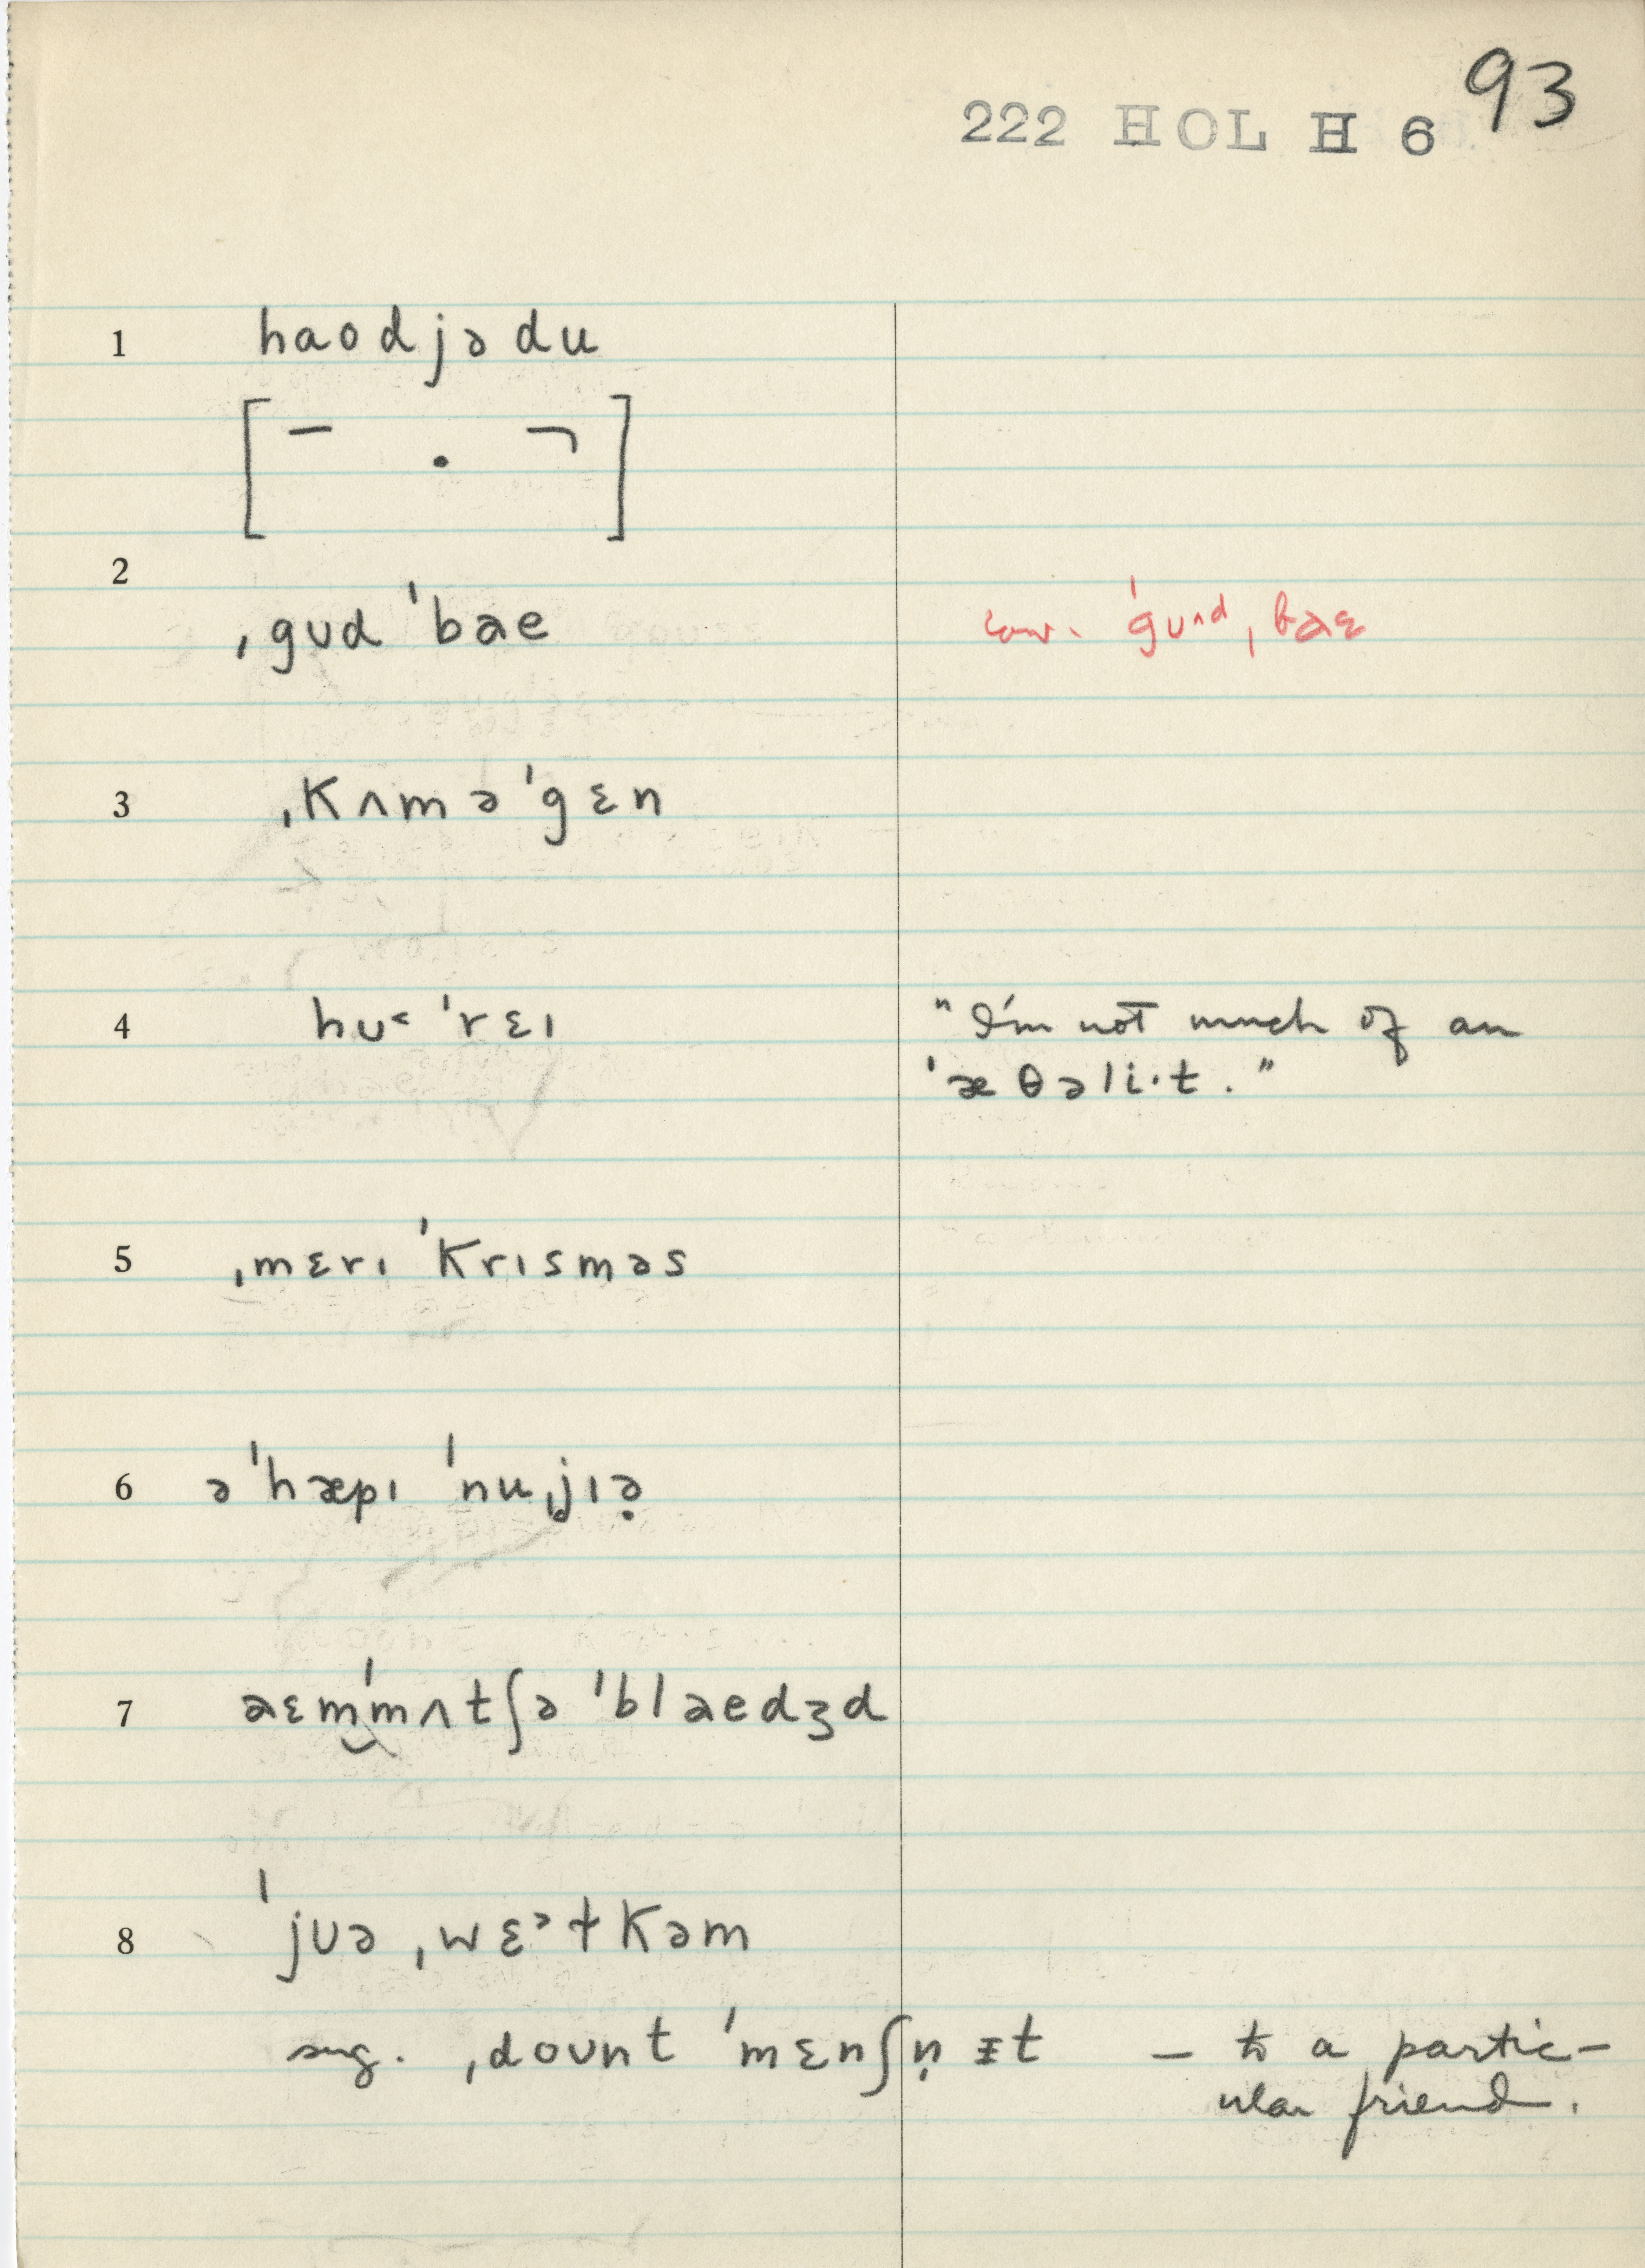 93
222 HOL H 6
1 haodjədu
[ – . ¬ ]
2 ˌgʊd ˈbae conv. ˈgʊʌd ˌbaɛ
3 ˌkʌmə ˈgɛn
4 hʊ˂ ˈrɛɪ "I'm not much of an
ˈæθəli·t."
5 ˌmɛrɪ ˈkrɪsməs
6 ə ˈhæpɪ ˈnuˌjɪə̣
7 aɛmˈmʌtʃə ˈblaedʒd
8 ˈjʊə ˌwɛᵊɫkəm
sug. ˌdoʊnt ˈmɛnʃn̩ ɪt – to a partic-
ular friend.